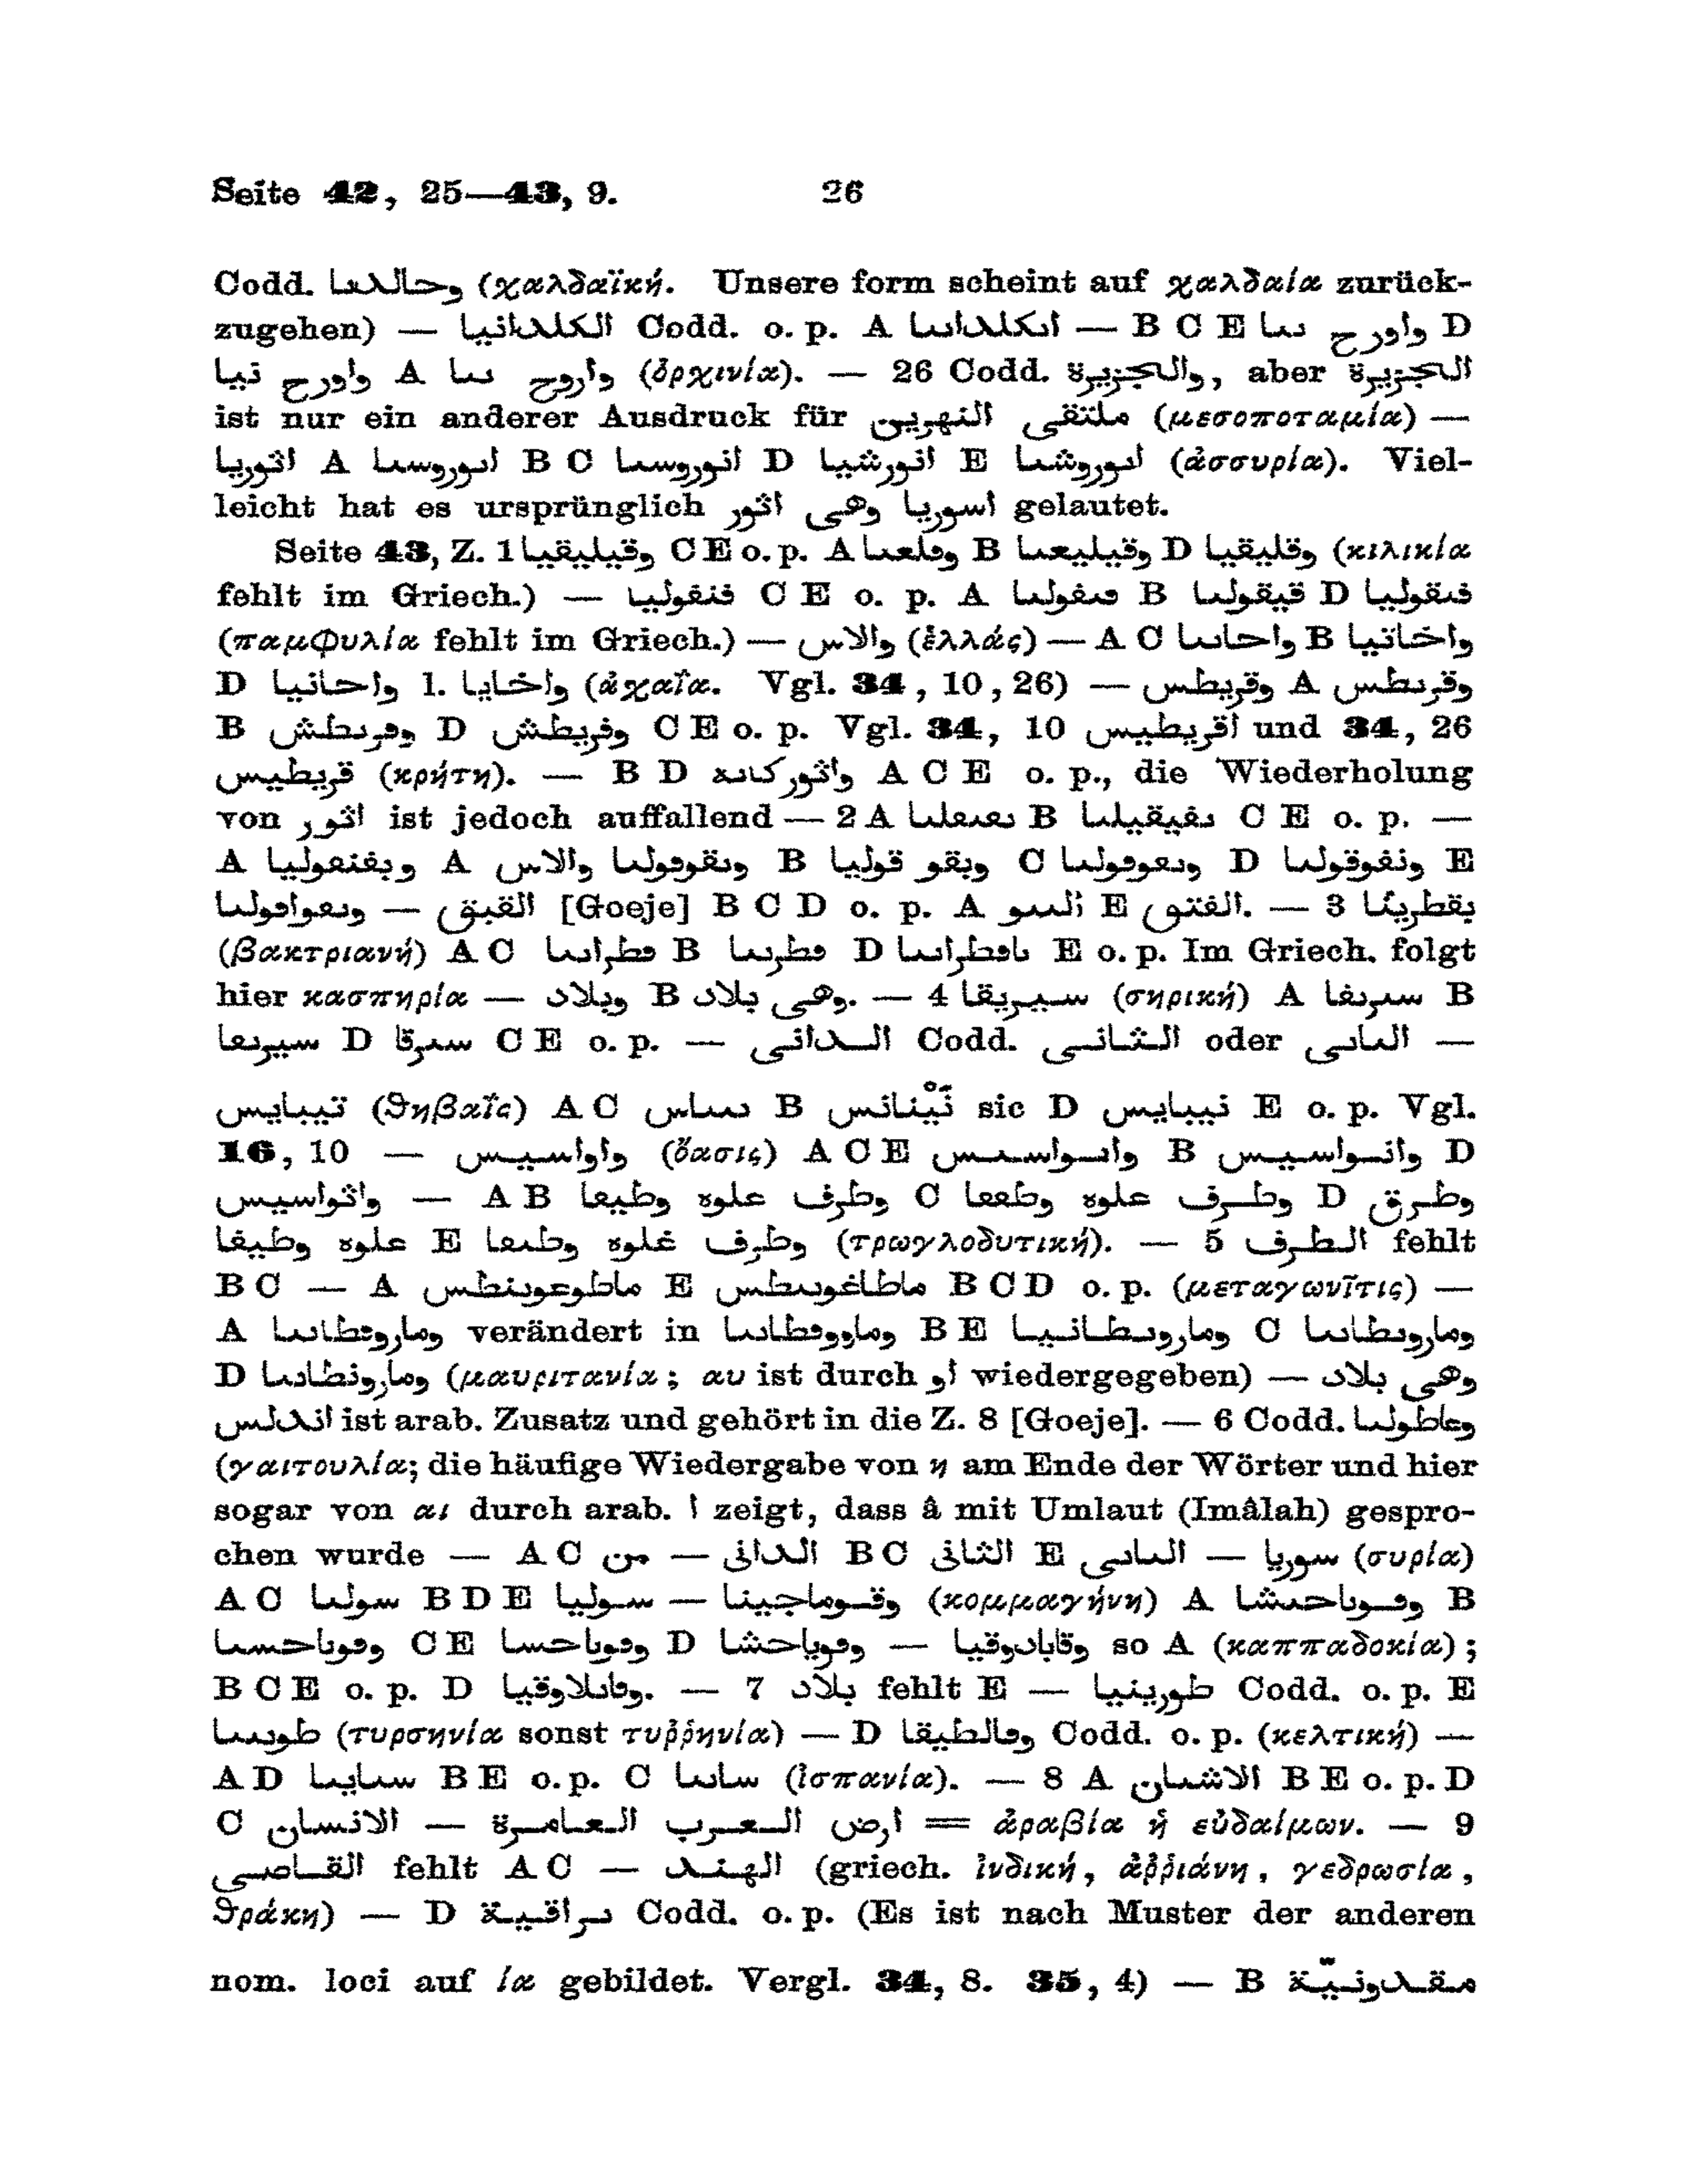 Seite 42, 25—43, 9. 26
Codd. وحالدىعا (χαλδαϊκή. Unsere form scheint auf χαλδαία zurück-
zugehen) — الكلدانيا Codd. o. p. A انكلداىىا — B C E واورح ىىا D
واورح نيا A واروح ىىا (ὀρχινία). — 26 Codd. والجزيرة, aber الجزيرة
ist nur ein anderer Ausdruck für ملتقى النهرين (μεσοποταμία) —
اثوريا A اىوروسىا B C انوروسىا D انورشيا E اىوروشىا (ἀσσυρία). Viel-
leicht hat es ursprünglich اسوريا وهى اثور gelautet.
Seite 43, Z. 1 وقيليقيا C E o. p. A وڡلعىا B وقيليعىا D وقليقيا (κιλικία
fehlt im Griech.) — فنفوليا C E o. p. A ڡىڡولىا B قيقولىا D فىقوليا
(παμφυλία fehlt im Griech.) — والاس (ἑλλάς) — A C واحاىىا B واخانيا
D واحانيا l. واخايا (ἀχαΐα. Vgl. 34, 10, 26) — وقريطس A وقرىطس
B وڡرىطش D وفريطش C E o. p. Vgl. 34, 10 اقريطيس und 34, 26
قريطيس (κρήτη). — B D واثور كاىىه A C E o. p., die Wiederholung
von اثور ist jedoch auffallend — 2 A ىعىعلىا B ىفيقيلىا C E o. p. —
A وبفنغوليا A وىقوڡولىا والاس B وبقو قوليا C وىعوڡولىا D ونفوقولىا E
وىعواڡولىا — القبق [Goeje] B C D o. p. A الىىو E الفتنو. — 3 بقطرينا
(βακτριανή) A C ڡطراىىا B ڡطرىىا D ىاڡطراىىا E o. p. Im Griech. folgt
hier κασπηρία — وبلاد B وهى بلاد. — 4 سيريقا (σηρική) A سىرىڡا B
سيرىعا D سىرقا C E o. p. — الدانى Codd. الثانى oder الىاىى —
تيبايس (θηβαΐς) A C ىىىاىس B نينانس sic D نيبايس E o. p. Vgl.
16, 10 — واواسيس (ὄασις) A C E واىواسىس B وانواسيس D
واثواسيس — A B وطرف علوه وطيعا C وطرف علوه وطععا D وطرق
علوه وطيقا E وطرف غلوه وطىعا (τρωγλοδυτική). — 5 الطرف fehlt
B C — A ماطوعوىنطس E ماطاغوىىطس B C D o. p. (μεταγωνῖτις) —
A وماروڡطاىىا verändert in وماووڡطاىىا B E وماروىطانيا C وماروىطاىىا
D ومارونطاىىا (μαυριτανία; αυ ist durch او wiedergegeben) — وهى بلاد
اندلس ist arab. Zusatz und gehört in die Z. 8 [Goeje]. — 6 Codd. وعاطولىا
(γαιτουλία; die häufige Wiedergabe von η am Ende der Wörter und hier
sogar von αι durch arab. ا zeigt, dass â mit Umlaut (Imâlah) gespro-
chen wurde — A C من — الدانى B C الثانى E الىاىى — سوريا (συρία)
A C سولىا B D E سوليا — وقوماجينا (κομμαγήνη) A وڡوىاحىشا B
وڡوىاحىسىا C E وڡوىاحسا D وڡوياحشا — وقابادوقيا so A (καππαδοκία);
B C E o. p. D وڡاىلاوقيا. — 7 بلاد fehlt E — طورينيا Codd. o. p. E
طوىىىا (τυρσηνία sonst τυῤῥηνία) — D وڡالطيقا Codd. o. p. (κελτική) —
A D سىاىيا B E o. p. C ساىىا (ἱσπανία). — 8 A الاشىان B E o. p. D
C الانسان — ارض العرب العامرة = ἀραβία ἡ εὐδαίμων. — 9
القاصى fehlt A C — الهند (griech. ἰνδική, ἀῤῥιάνη, γεδρωσία,
θράκη) — D ىراقية Codd. o. p. (Es ist nach Muster der anderen
nom. loci auf ία gebildet. Vergl. 34, 8. 35, 4) — B مقدونيّة